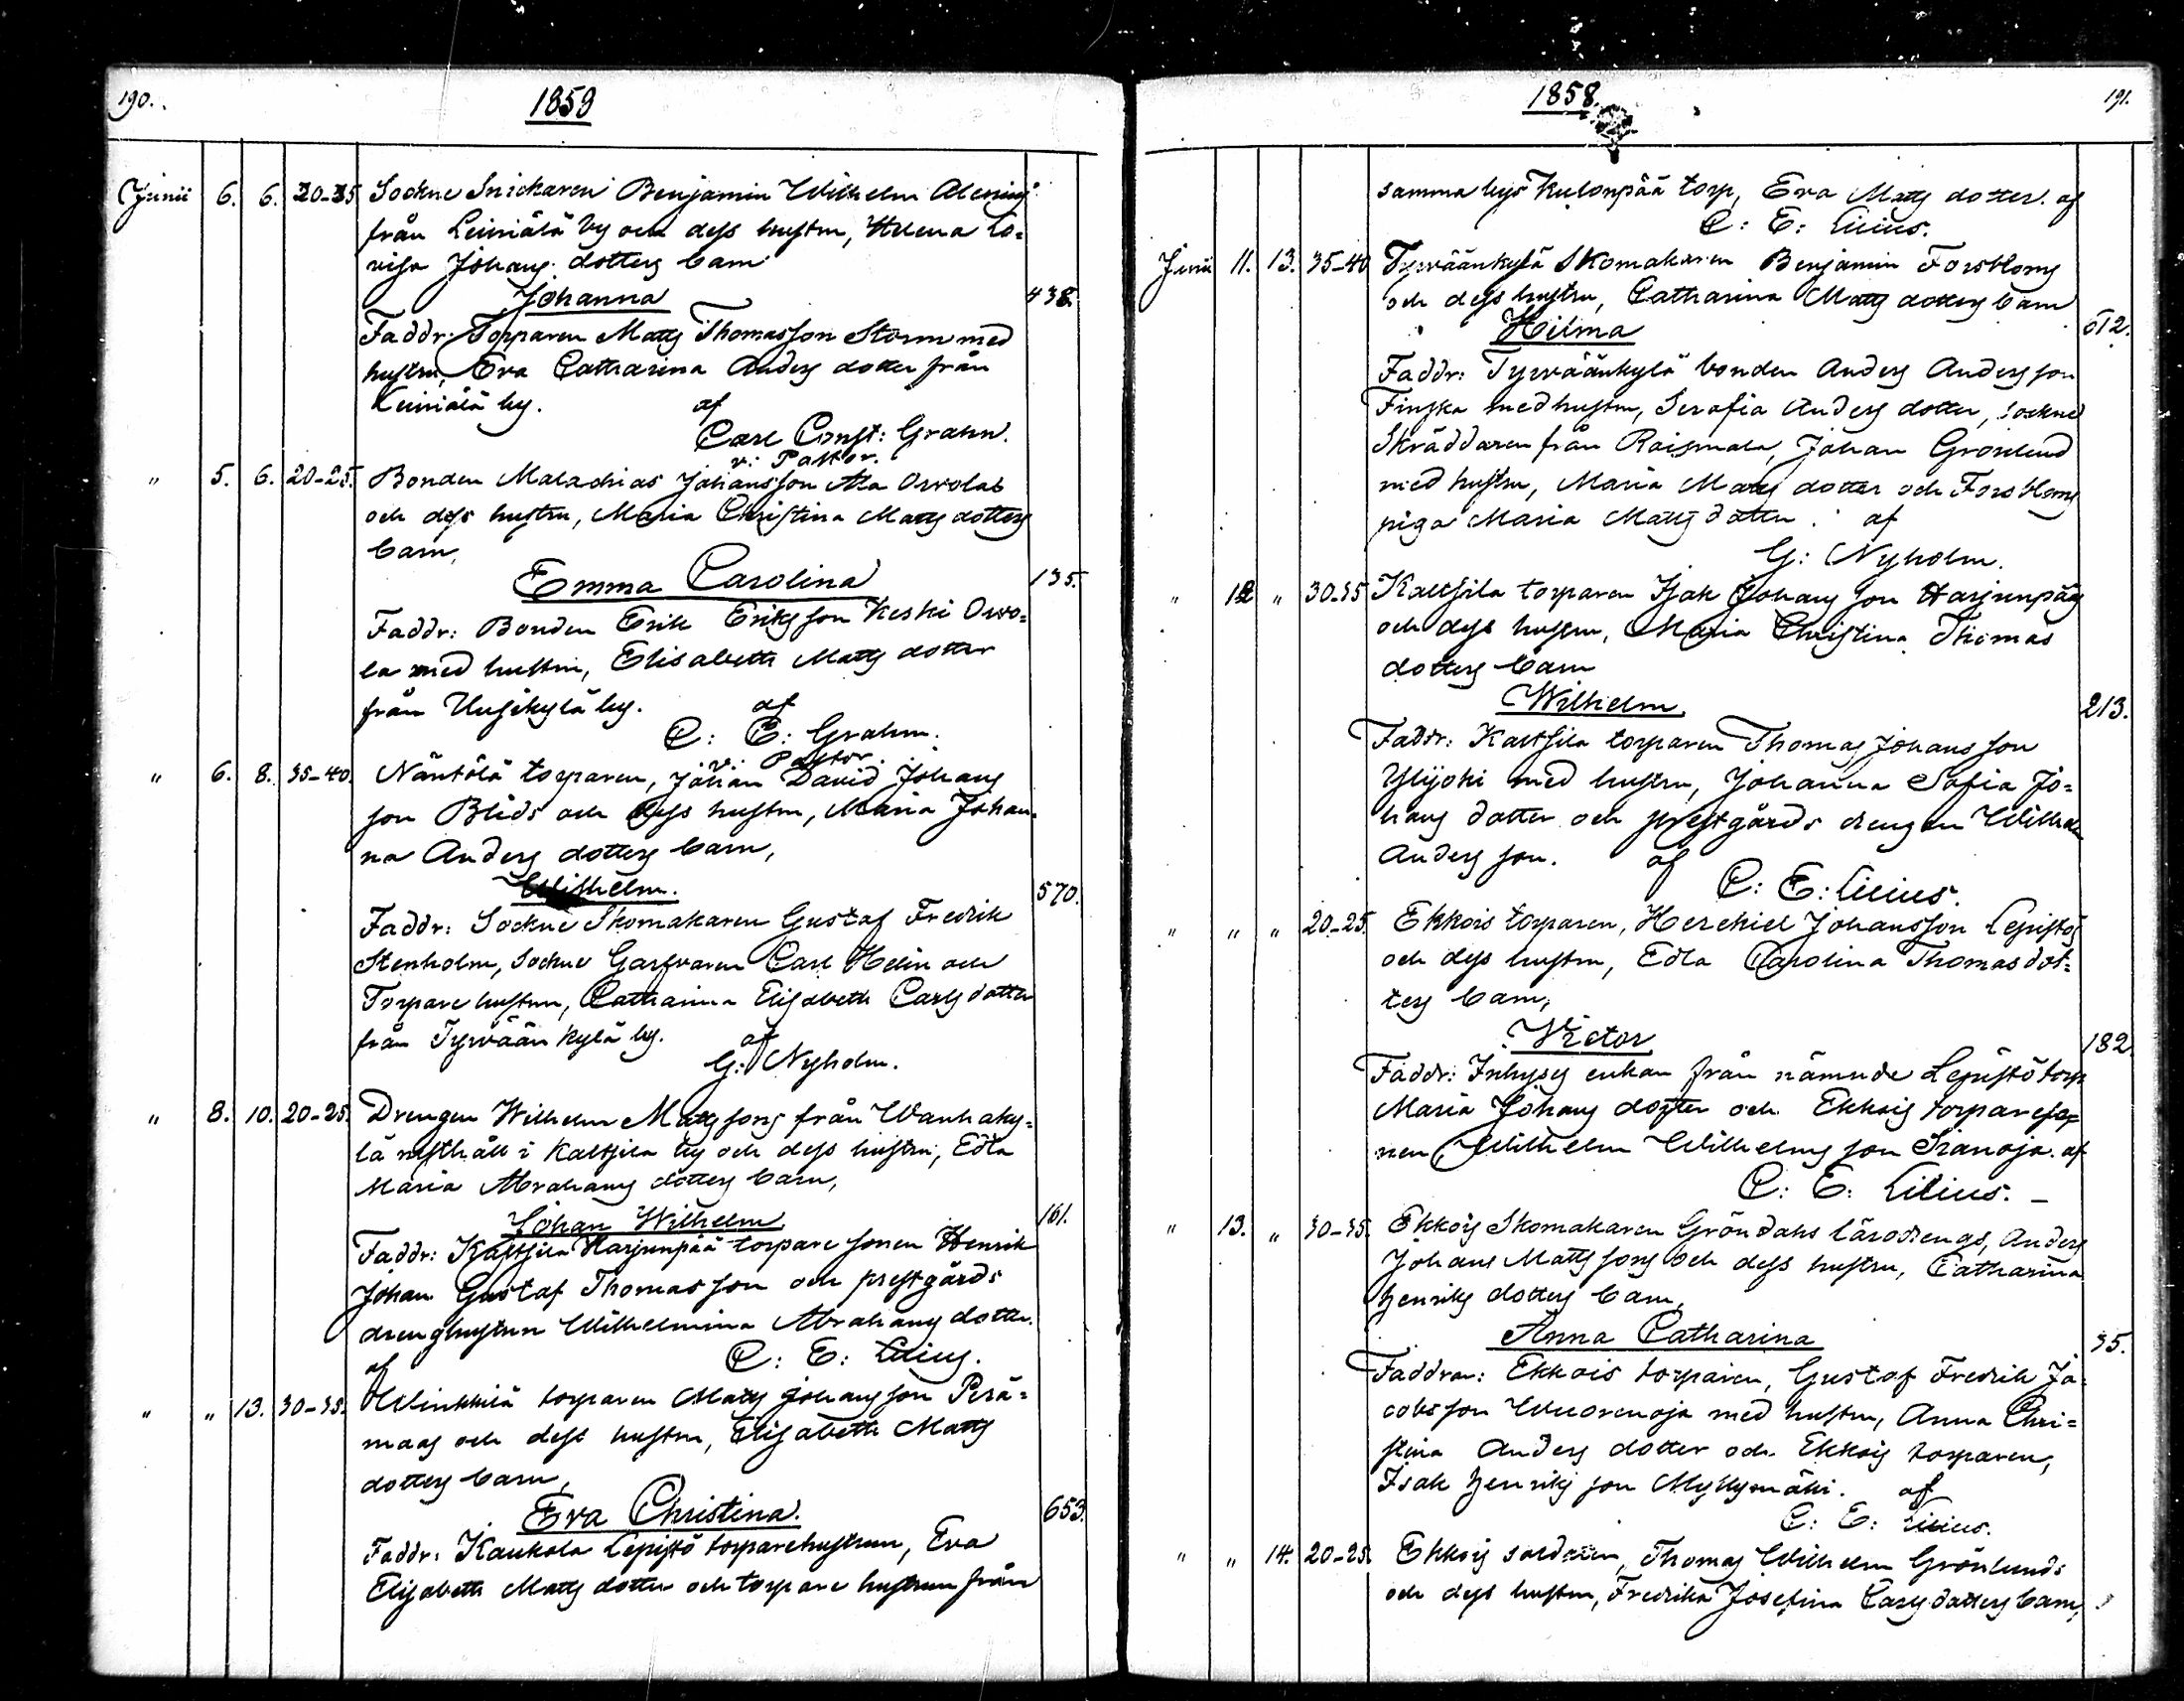 190.
1859
Junii 6. 6. 20-25 Sockne Snickaren Benjamin Wilhelm Alenius
från Leiniälä by och dess hustru, Helena Lo=
visa Johans dotters barn
Johanna 438.
Faddr: Torparen Matts Thomasson Storm med
hustru, Eva Catharina Anders dotter från
Leiniälä by. af
Carl Const: Grahn.
v: Pastor.
" 5. 6. 20-25. Bonden Malachias Johansson Ala Orvolas
och dess hustru, Maria Christina Matts dotters
barn,
Emma Carolina 135.
Faddr: Bonden Erik Eriksson Keski Orvo=
la med hustru, Elisabeth Matts dotter
från Uusikylä by. af
C: C: Grahn.
v: Pastor.
" 6. 8. 35-40. Näntölä torparen, Johan David Johans
son Blids och dess hustru, Maria Johan=
na Anders dotters barn,
Wilhelm. 570.
Faddr: Sockne Skomakaren Gustaf Fredrik
Stenholm, Sockne Garfvaren Carl Helin och
Torpare hustrun, Catharina Elisabeth Carls dotter
från Tyrvään kylä by. af
G: Nyholm.
" 8. 10. 20-25. Drengen Wilhelm Matts sons från Wanhaky=
lä rusthåll i Kaltsila by och dess hustru, Edla
Maria Abrahams dotters barn,
Johan Wilhelm 161.
Faddr: Kaltsila Harjunpää torpare sonen Henrik
Johan Gustaf Thomasson och prestgårds
dreng hustrun Wilhelmina Abrahams dotter.
af C: E: Lilius.
" " 13. 30-35. Winkkilä torparen Matts Johansson Perä=
maas och dess hustru, Elisabeth Matts
dotters barn,
Eva Christina. 653.
Faddr: Kaukola Lepistö torparehustrun, Eva
Elisabeth Matts dotter och torpare hustrun från
1858. 191.
samma bys Kulonpää torp, Eva Matts dotter. af
C: E: Lilius.
Junii 11. 13. 35-40 Tyrväänkylä Skomakaren Benjamin Forsbloms
och dess hustru, Catharina Matts dotters barn
Hilma 612.
Faddr: Tyrväänkylä bonden Anders Andersson
Finska med hustru, Serafia Anders dotter, sockne
Skräddaren från Raismala, Johan Grönlund
med hustru, Maria Matts dotter och Forsbloms
piga Maria Matts dotter. af
G: Nyholm.
" 12 " 30-35 Kaltsila torparen Isak Johans son Harjunpääs
och dess hustru, Maria Christina Thomas
dotters barn
Wilhelm 213.
Faddr: Kaltsila torparen Thomas Johansson
Ylijoki med hustru, Johanna Sofia Jo=
hans dotter och prestgårds drengen Wilhelm
Anders son. af
C: E: Lilius.
" " " 20-25. Ekkois torparen, Herekiel Johansson Lepistös
och dess hustru, Edla Carolina Thomas dot=
ters barn,
Victor 182
Faddr: Inhyses enkan från nämnde Lepistö torp
Maria Johans dotter och Ekkois torpareso=
nen Wilhelm Wilhelms son Sianoja. af
C: E: Lilius. -
" 13. " 30-35. Ekkois Skomakaren Gröndahls lärodrengs, Anders
Johans Matts sons och dess hustru, Catharina
Henriks dotters barn,
Anna Catharina 35.
Faddrar: Ekkois torparen, Gustaf Fredrik Ja=
cobsson Wuorenoja med hustru, Anna Chri=
stina Anders dotter och Ekkois torparen,
Isak Henriks son Myllymäki. af
C: E: Lilius.
" " 14. 20-25. Ekkois soldaten, Thomas Wilhelm Grönlunds
och dess hustru, Fredrika Josefina Carls dotters barn,